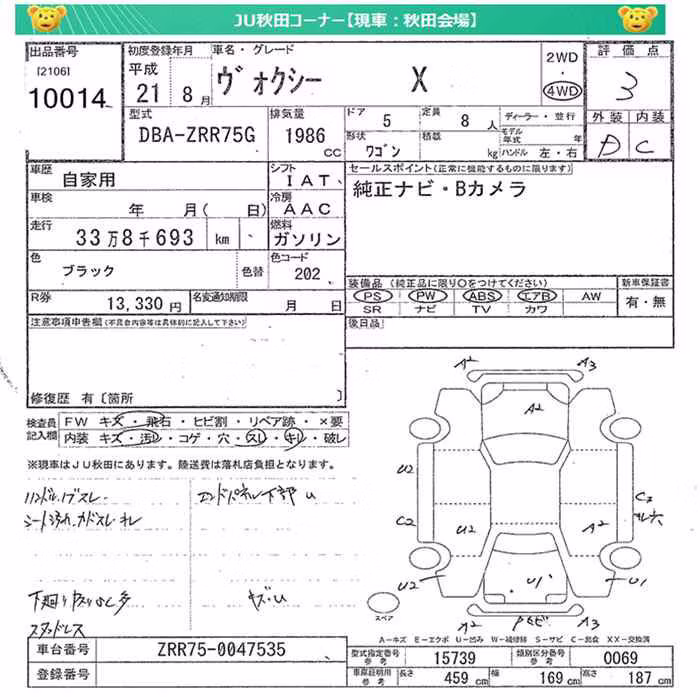 JU秋田コーナー【現車：秋田会場】
出品番号
[2106]
10014
初度登録年月
平成
21 8月
車名・グレード
ヴォクシー X
2WD
・
4WD
評価点
3
外装 内装
D C
型式
DBA-ZRR75G
排気量
1986
CC
ドア 5
定員 8 人
形状 ワゴン
積載 kg
ディーラー・並行
モデル年式 年
ハンドル 左・右
車歴 自家用
シフト IAT
セールスポイント(正常に機能するものに限ります)
純正ナビ・Bカメラ
車検 年 月( 日)
冷房 AAC
走行 33万8千693 km
燃料 ガソリン
色 ブラック 色替
色コード 202
装備品 (純正品に限り○をつけてください)
PS PW ABS エアB AW
SR ナビ TV カワ
新車保証書
有・無
R券 13,330円
名変通知期限 月 日
注意事項申告欄(不具合内容等は具体的に記入して下さい)
後日品
修復歴 有〔箇所 〕
検査員記入欄
FW キズ・飛石・ヒビ割・リペア跡・×要
内装 キズ・汚レ・コゲ・穴・スレ・キレ・破レ
※現車はJU秋田にあります。陸送費は落札店負担となります。
ハンドル、ノブスレ
シート汚れ、カドスレ、キレ
エンドパネル下部 U
キズ・U
スタッドレス
A2 A3
A2
U2
C2
U2
A2
C2
U2
U1
U1
A2 A3
スペア
A-キズ E-エクボ U-凹み W-補修跡 S-サビ C-腐食 XX-交換済
車台番号 ZRR75-0047535
登録番号
型式指定番号 参考 15739
類別区分番号 参考 0069
車庫証明用 参考
長さ 459 cm
幅 169 cm
高さ 187 cm